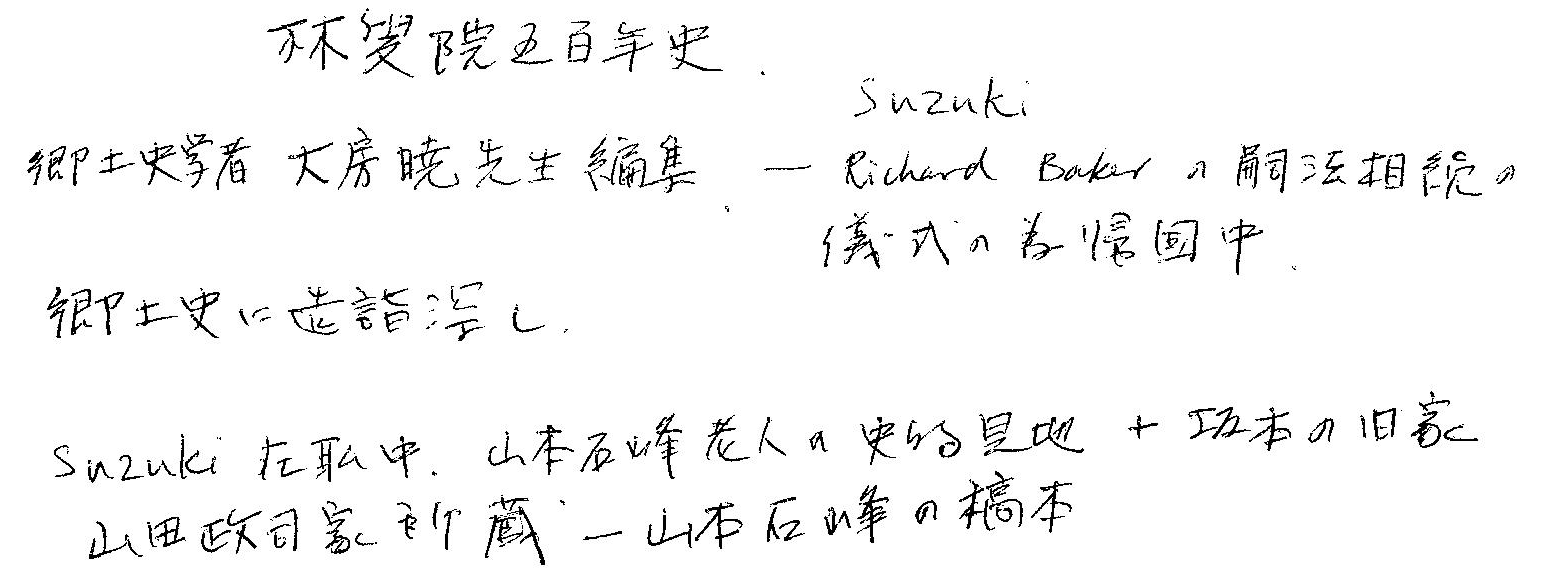 林叟院五百年史.
郷土史学者 大房暁先生編集. — Suzuki
Richard Baker の嗣法相続の
儀式の為帰国中.
郷土史に造詣深し.
Suzuki 在職中. 山本石峰老人の史的見地 + 坂本の旧家
山田政司家所蔵 — 山本石峰の稿本